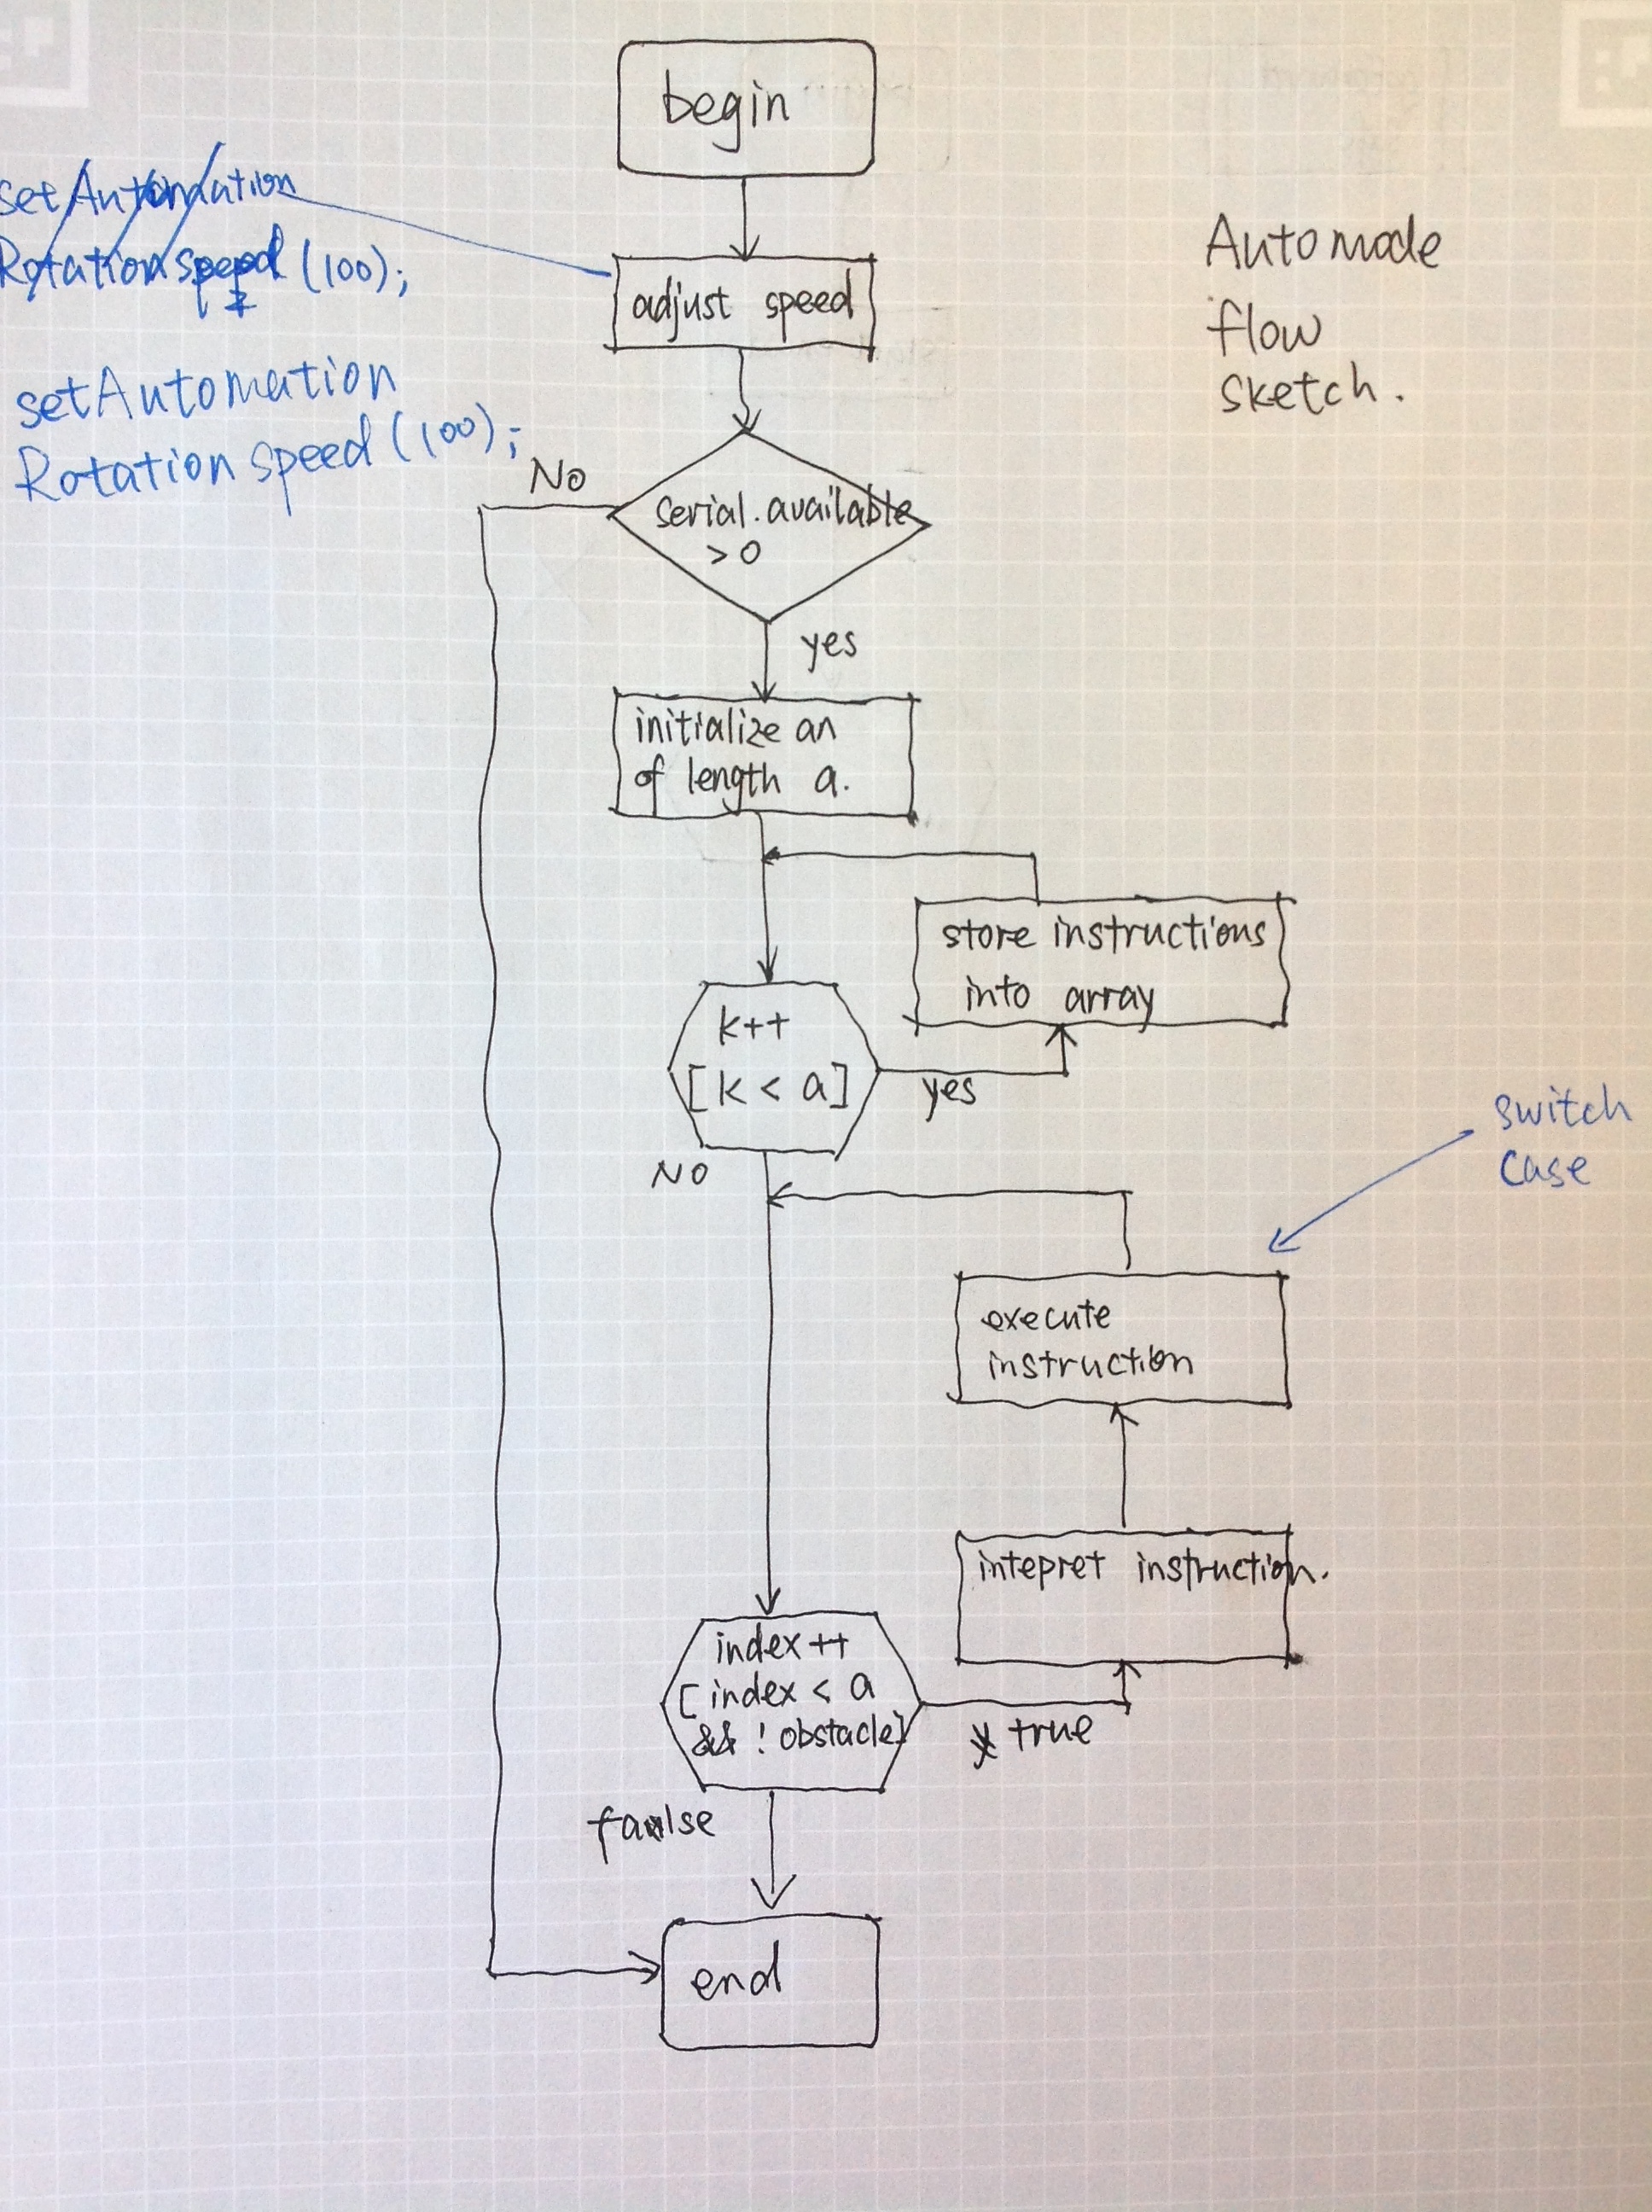 begin
setAutomation
Rotationspeed (100);
adjust speed
Auto mode
flow
sketch.
setAutomation
Rotation speed (100);
No
serial.available
>0
yes
initialize an
of length a.
store instructions
into array
k++
[k < a]
yes
NO
switch
case
execute
instruction
intepret instruction.
index++
[index < a
&& ! obstacle]
true
false
end